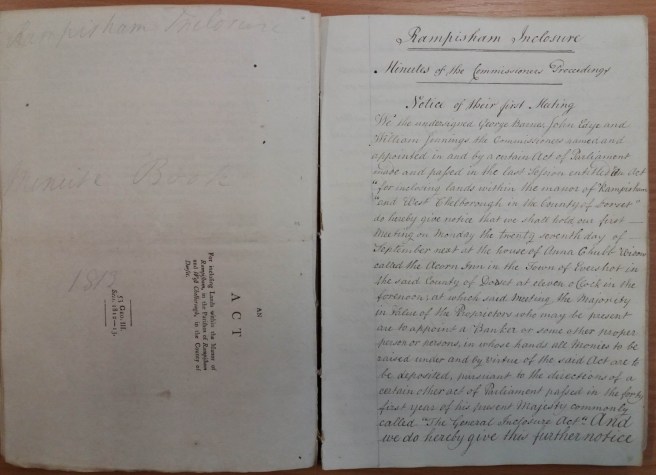 Rampisham Inclosure
Minute Book
1813
AN
ACT
For inclosing Lands within the Manor of
Rampisham, in the Parishes of Rampisham
and West Chelborough, in the County of
Dorset.
53 Geo. III.
Sess. 1812-13.
Rampisham Inclosure
Minutes of the Commissioners Proceedings
Notice of their first Meeting
We the undersigned George Barnes, John Edye and
William Jennings the Commissioners named and
appointed in and by a certain Act of Parliament
made and passed in the last Session entitled "An Act
"for inclosing lands within the manor of Rampisham
"and West Chelborough in the County of Dorset"
do hereby give notice that we shall hold our first
Meeting on Monday the twenty seventh day of
September next at the house of Anna Chubb
called the Acorn Inn in the Town of Evershot in
the said County of Dorset at eleven oClock in the
forenoon; at which said Meeting, the Majority
in value of the Proprietors who may be present
are to appoint a Banker or some other proper
person or persons, in whose hands all Monies to be
raised under and by virtue of the said Act are to
be deposited, pursuant to the directions of a
certain other act of Parliament passed in the forty
first year of his present Majesty commonly
called "The General Inclosure Act." And
we do hereby give this further notice